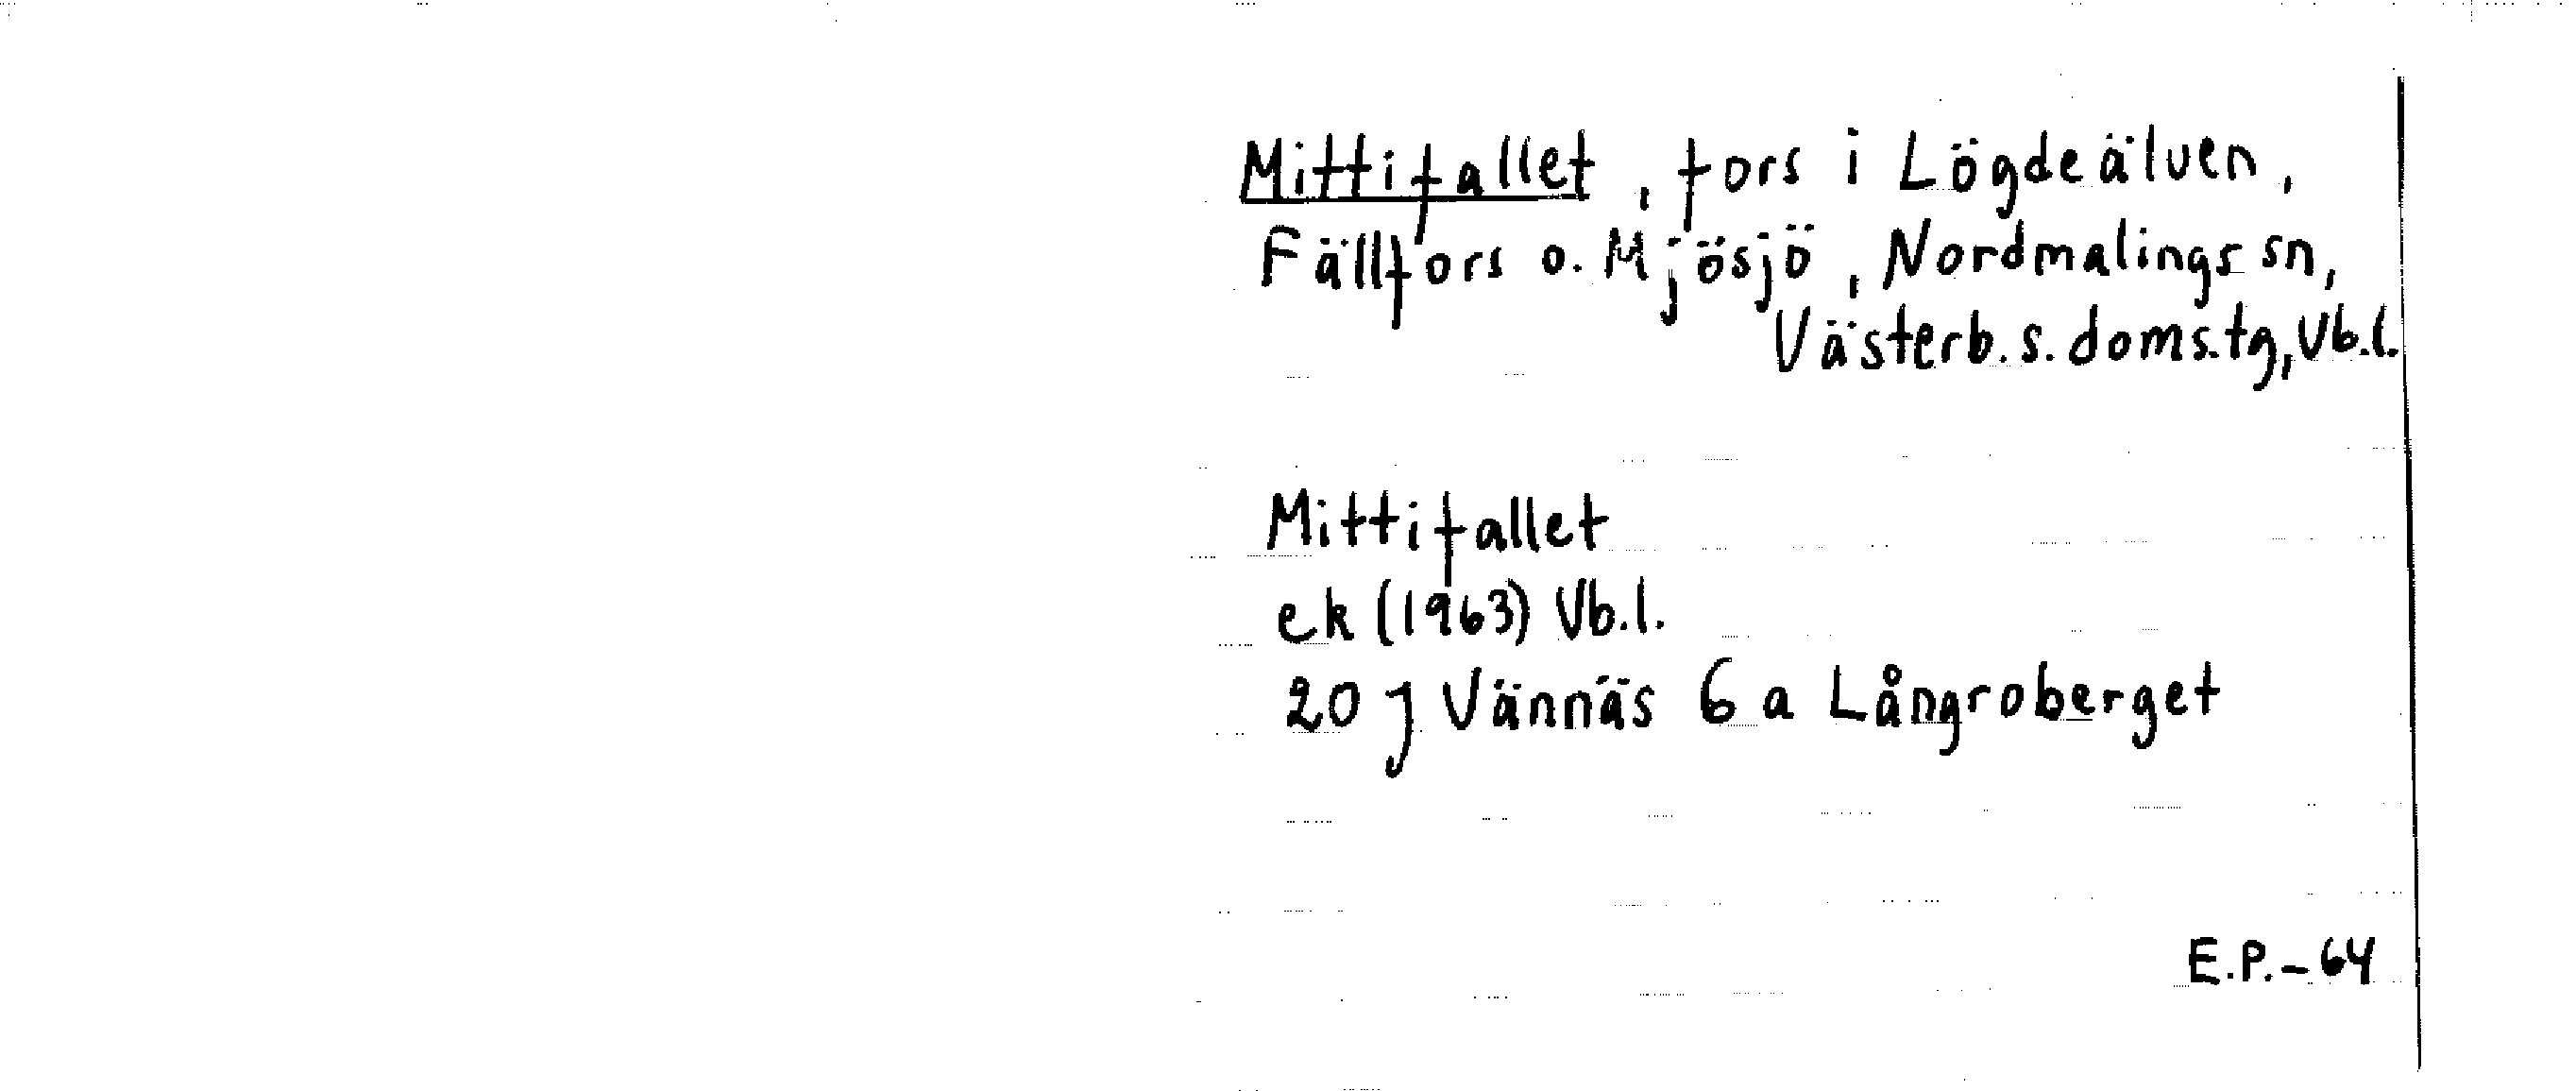 Mittifallet, fors i Lögdeälven,
Fällfors o. Mjösjö, Nordmalings sn,
Västerb. s. doms. tg, Vb. l.
Mittifallet
ek (1963) Vb. l.
20 J Vännäs 6 a Långroberget
E.P. - 64